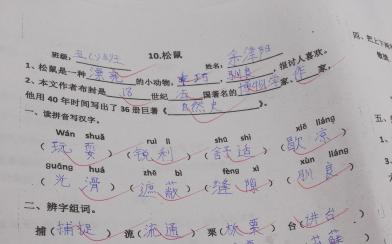 10.松鼠
班级: 姓名:
1、松鼠是一种漂亮的小动物,乖巧,驯良,很讨人喜欢。
2、本文作者布封是18世纪法国著名的博物学家、作家,
他用40年时间写出了36册巨著《自然史》。
一、读拼音写汉字。
Wán shuǎ ruì lì shū shì xiē liáng
(玩耍) (锐利) (舒适) (歇凉)
guāng huá zhē bì fèng xì xùn liáng
(光滑) (遮蔽) (缝隙) (驯良)
二、辨字组词。
捕(捕捉) 流(流通) 栗(板栗) 台(进台)
四、把上
五、